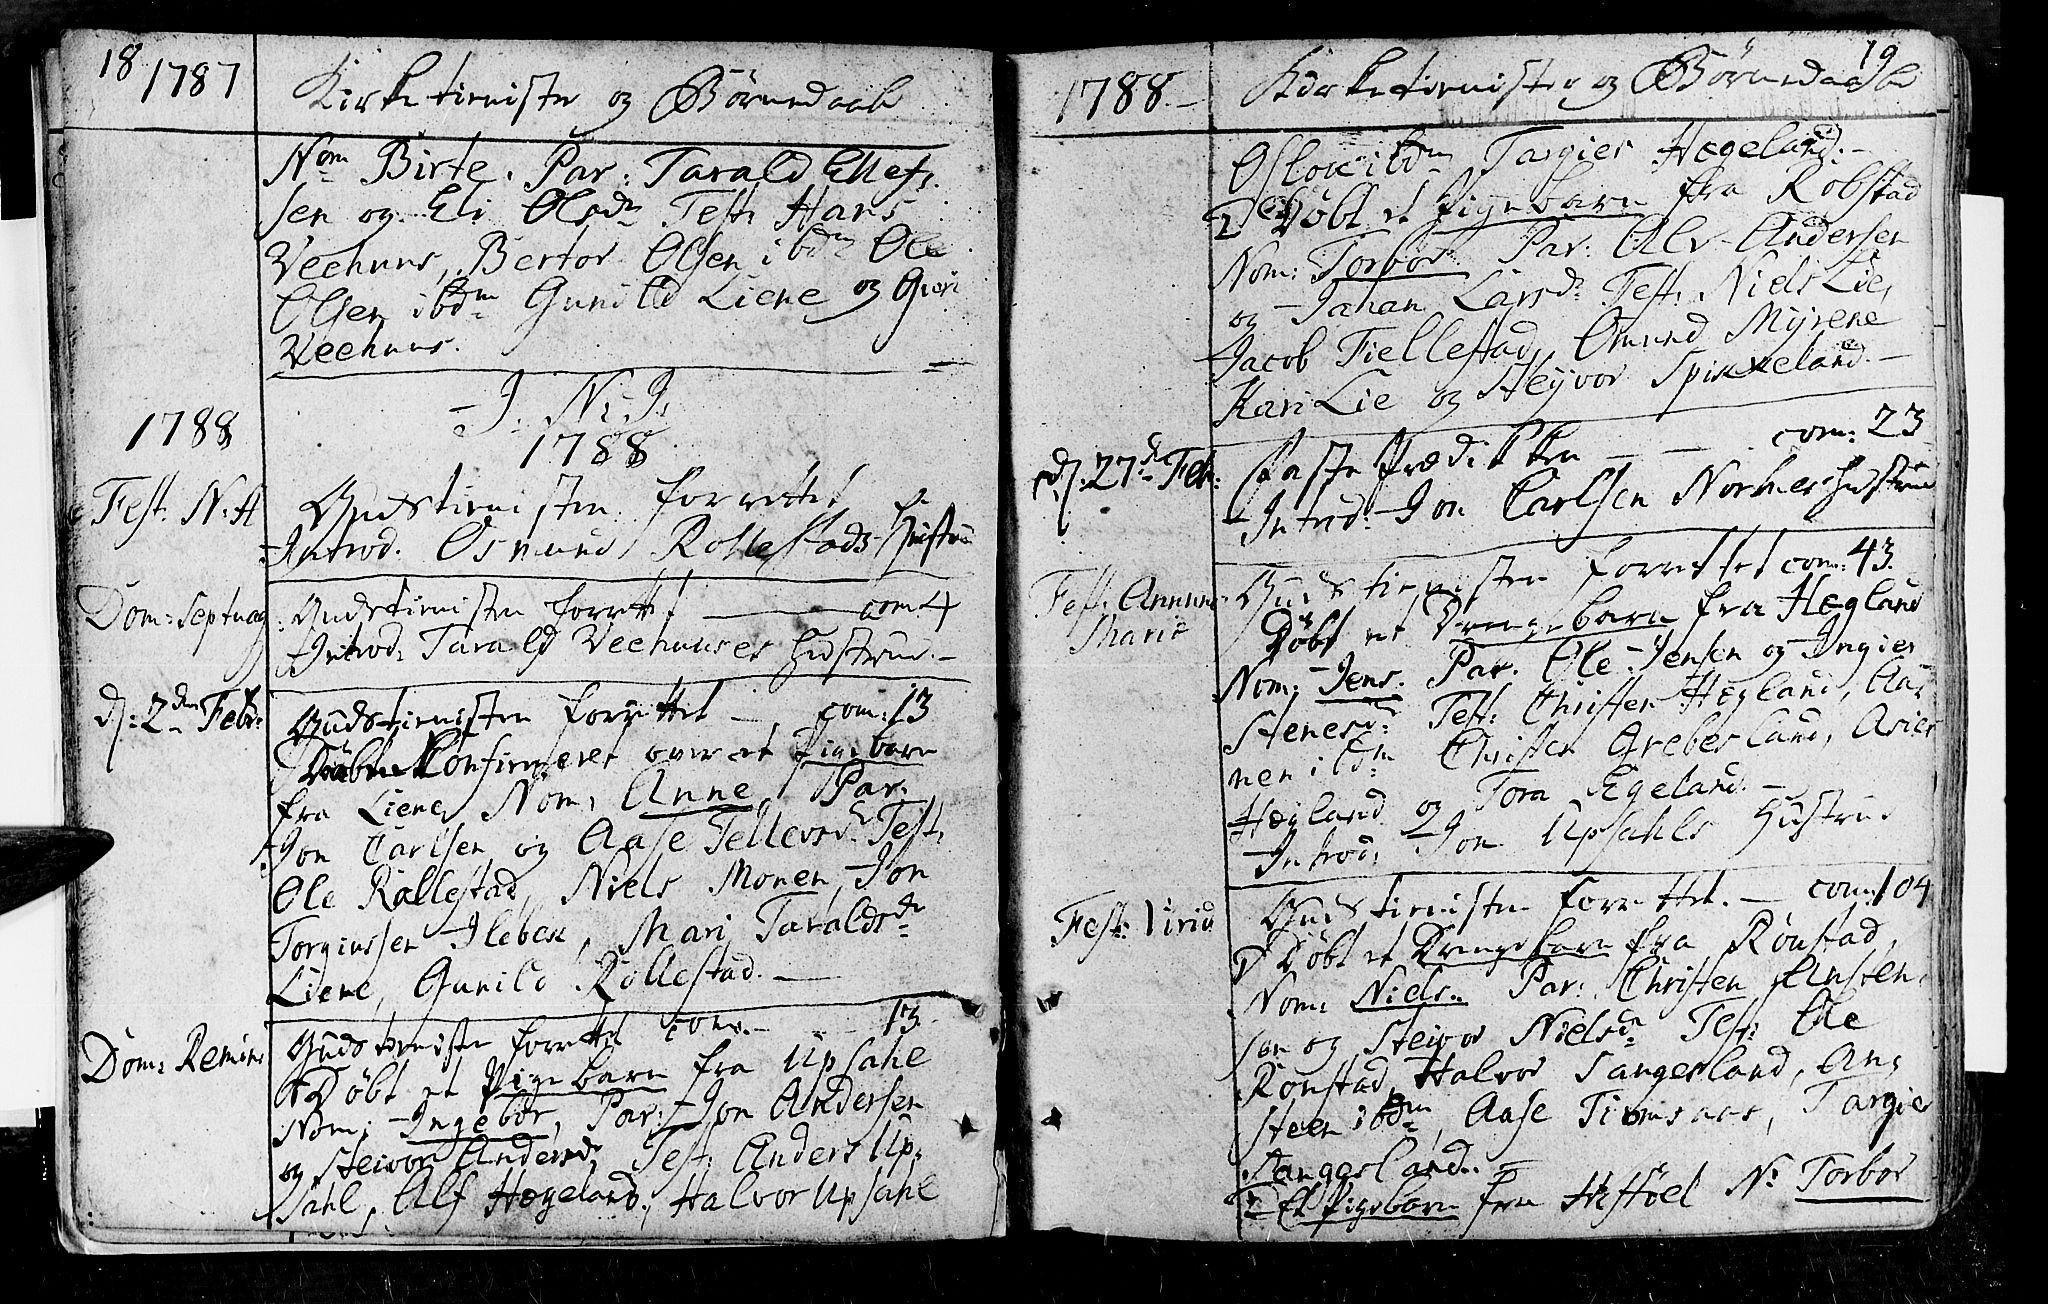 18 1787 Kirketienister og Børnedaab
Nom Birte. Par: Tarald Ellefs
sen og Eli Olsdr Test: Hans
Veehuus, Bertor Olsen ibdm Ole
Olsen ibdm Gunild Liene og Giøri
Veehuus.
J. N. J.
1788 1788
Fest. N: A Gudstienisten forrettet
Introd. Osmund Rollestads Hustrue
Dom: Septuag: Gudstienisten forrett com 4
Introd: Tarald Veehuuses Hustrue.
d: 2den Febr: Gudstienisten forrettet com: 13
Døbt Confirmeret over et Pigebarn
fra Liene, Nom: Anne, Par.
Jon Carlsen og Aase Tellevsdr Test:
Ole Rallestad, Niels Monen, Jon
Torgiussen Ilebek, Mari Taraldsdr
Liene, Gunild Rollestad.
Dom: Remini Gudstienisten forrettet com. 13
Døbt et Pigebarn fra Upsahl
Nom: Ingebor, Par: Jon Andersen
og Steivor Andersdr Test: Anders Up-
sahl, Alf Hægeland, Halvor Upsahl
1788. Kirketienister og Børnedaab 19
Oslou ibdm Targier Hægeland.
2 Døbt et Pigebarn fra Robstad
Nom: Torbor Par: Alv Andersen
og Johan Larsdr Test: Niels Lie,
Jacob Fiellestad, Omund Myrene
Kari Lie og Steyvor Spikkeland.
d: 27de Feb: Fasteprædikken com: 23
Introd: Jon Carlsen Norhuus Hustrue
Fest: Annunc: Gudstienisten forrettet com: 43.
Mariæ Døbt et Drengebarn fra Hægland
Nom: Jens. Par. Ole Jensen og Ingier
Stenesdr Test: Christen Hægland, Aa-
nen ibdm Christen Grebesland, Asier
Hægland og Tora Egeland.
Introd: Jon Upsahls Hustrue
Fest: Virid Gudstienisten forrettet. com: 104
Døbt et Drengebarn fra Rønstad,
Nom: Niels. Par: Christen Ansten-
sen og Steivor Nielsdr Test: Ole
Rønstad, Halvor Sangesland, An-
steen ibdm, Aase Tiomsaas, Targier
Sangesland.
Et Pigebarn fra Heftøel N: Torbor